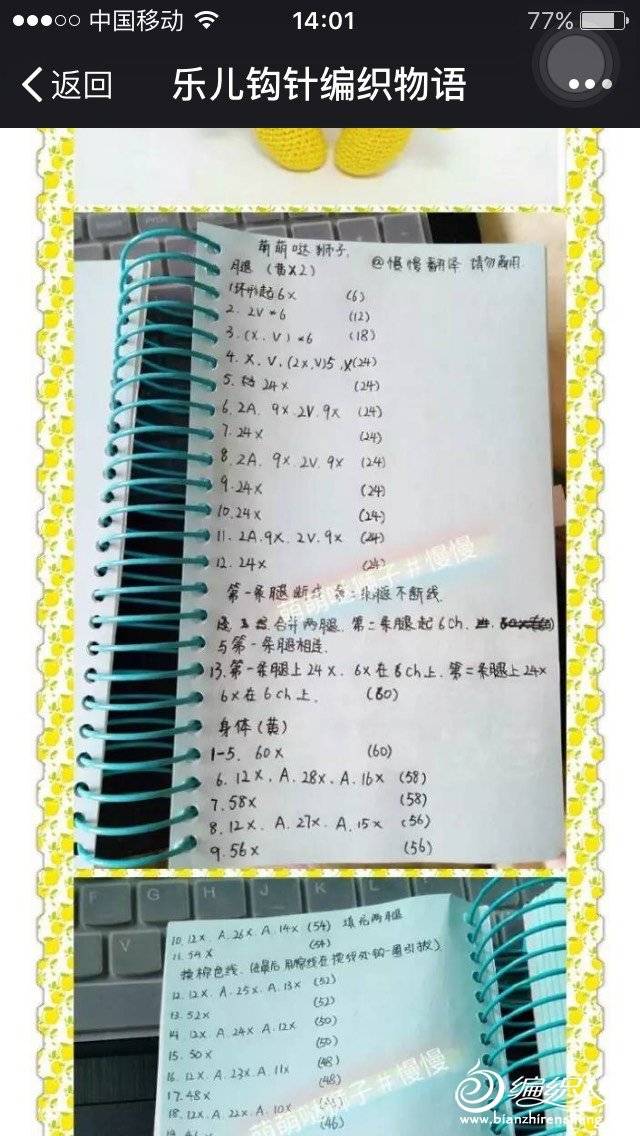 中国移动 14:01 77%
返回 乐儿钩针编织物语
萌萌哒狮子.
腿 (黄X2) @慢慢翻译 请勿商用.
1环形起6X (6)
2. 2V*6 (12)
3. (X. V) *6 (18)
4. X. V. (2X.V)5. X (24)
5. 24X (24)
6. 2A. 9X. 2V. 9X (24)
7. 24X (24)
8. 2A. 9X. 2V. 9X (24)
9. 24X (24)
10. 24X (24)
11. 2A. 9X. 2V. 9X (24)
12. 24X (24)
第一条腿断线 第二条腿不断线.
合并两腿. 第二条腿起6ch.
与第一条腿相连.
13. 第一条腿上24X. 6X在6ch上. 第二条腿上24X
6X在6ch上. (60)
身体(黄)
1-5. 60X (60)
6. 12X. A. 28X. A. 16X (58)
7. 58X (58)
8. 12X. A. 27X. A. 15X (56)
9. 56X (56)
萌萌哒狮子#慢慢
F G H J K L
V B
10. 12X. A. 26X. A. 14X (54) 填充两腿
11. 54X (54)
换棕色线. (最后用棕线在换线处钩一圈引拔)
12. 12X. A. 25X. A. 13X (52)
13. 52X (52)
14. 12X. A. 24X. A. 12X (50)
15. 50X (50)
16. 12X. A. 23X. A. 11X (48)
17. 48X (48)
18. 12X. A. 22X. A. 10X
19. 46X (46)
萌萌哒狮子#慢慢
编织人
www.bianzhirensheng